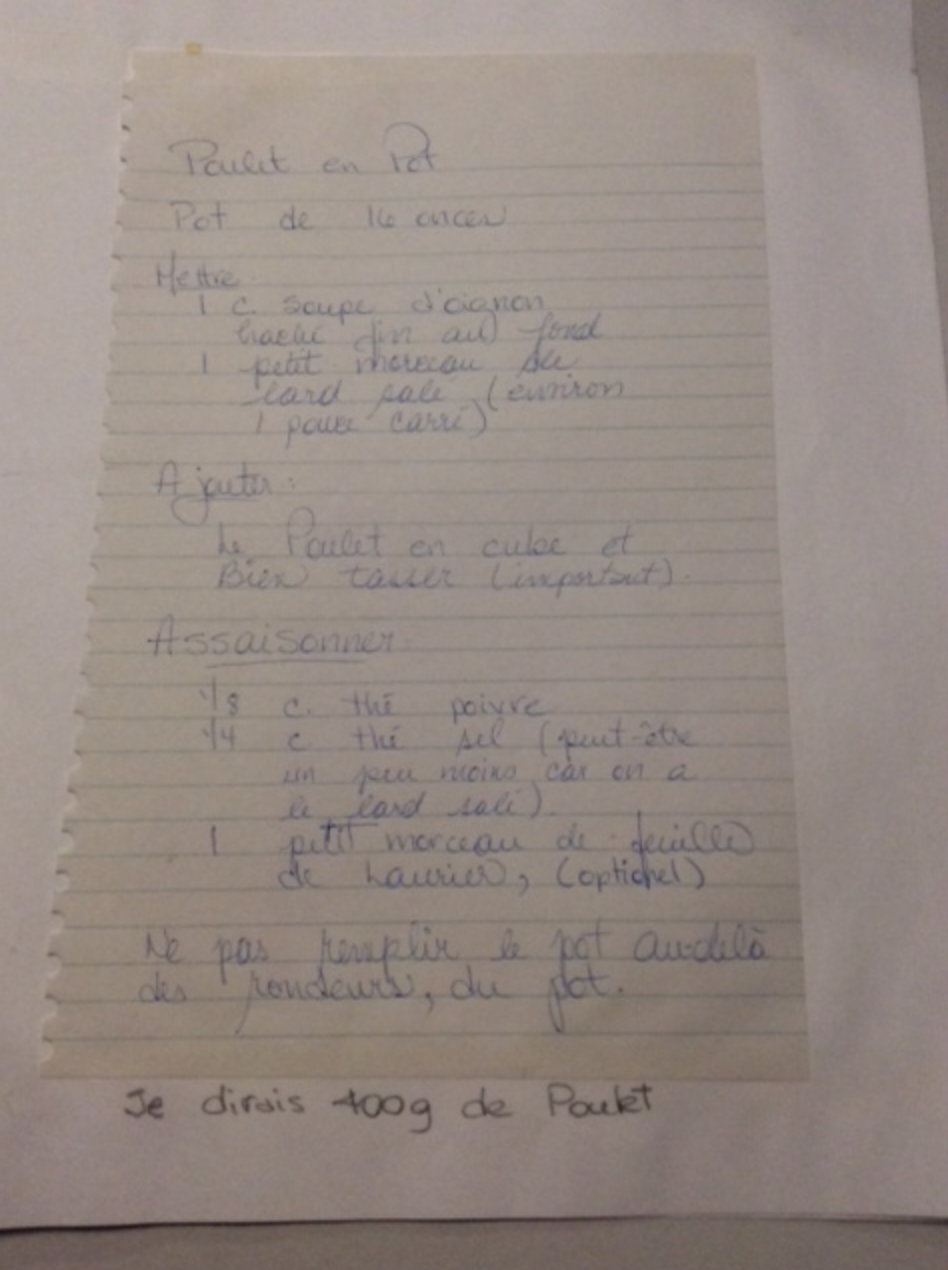 Poulet en Pot
Pot de 16 onces
Mettre
1 c. soupe d'oignon
haché fin au fond
1 petit morceau de
lard salé (environ
1 pouce carré)
Ajouter :
Le Poulet en cube et
Bien tasser (important).
Assaisonner
1/8 c. thé poivre
1/4 c thé sel (peut-être
un peu moins car on a
le lard salé).
1 petit morceau de feuille
de Laurier, (optionel)
Ne pas remplir le pot au-delà
des rondeurs, du pot.
Je dirais 400g de Poulet